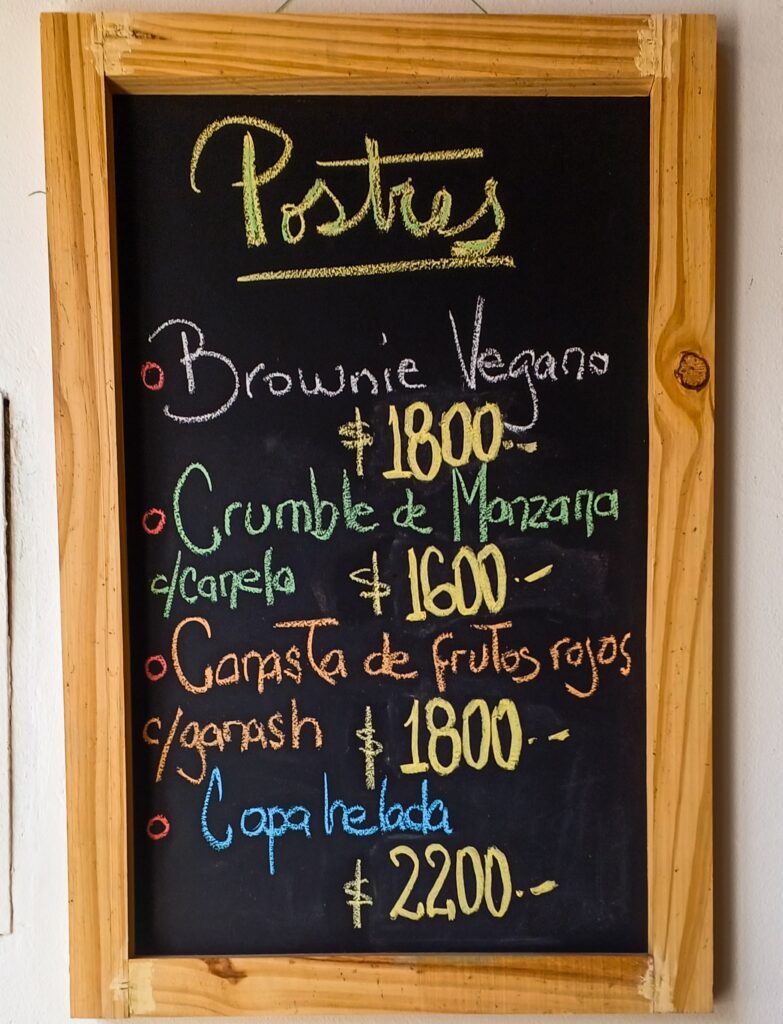 Postres
Brownie Vegano
$ 1800.-
Crumble de Manzana
c/canela $ 1600.-
Canasta de frutos rojos
c/ganash $ 1800.-
Copa helada
$ 2200.-